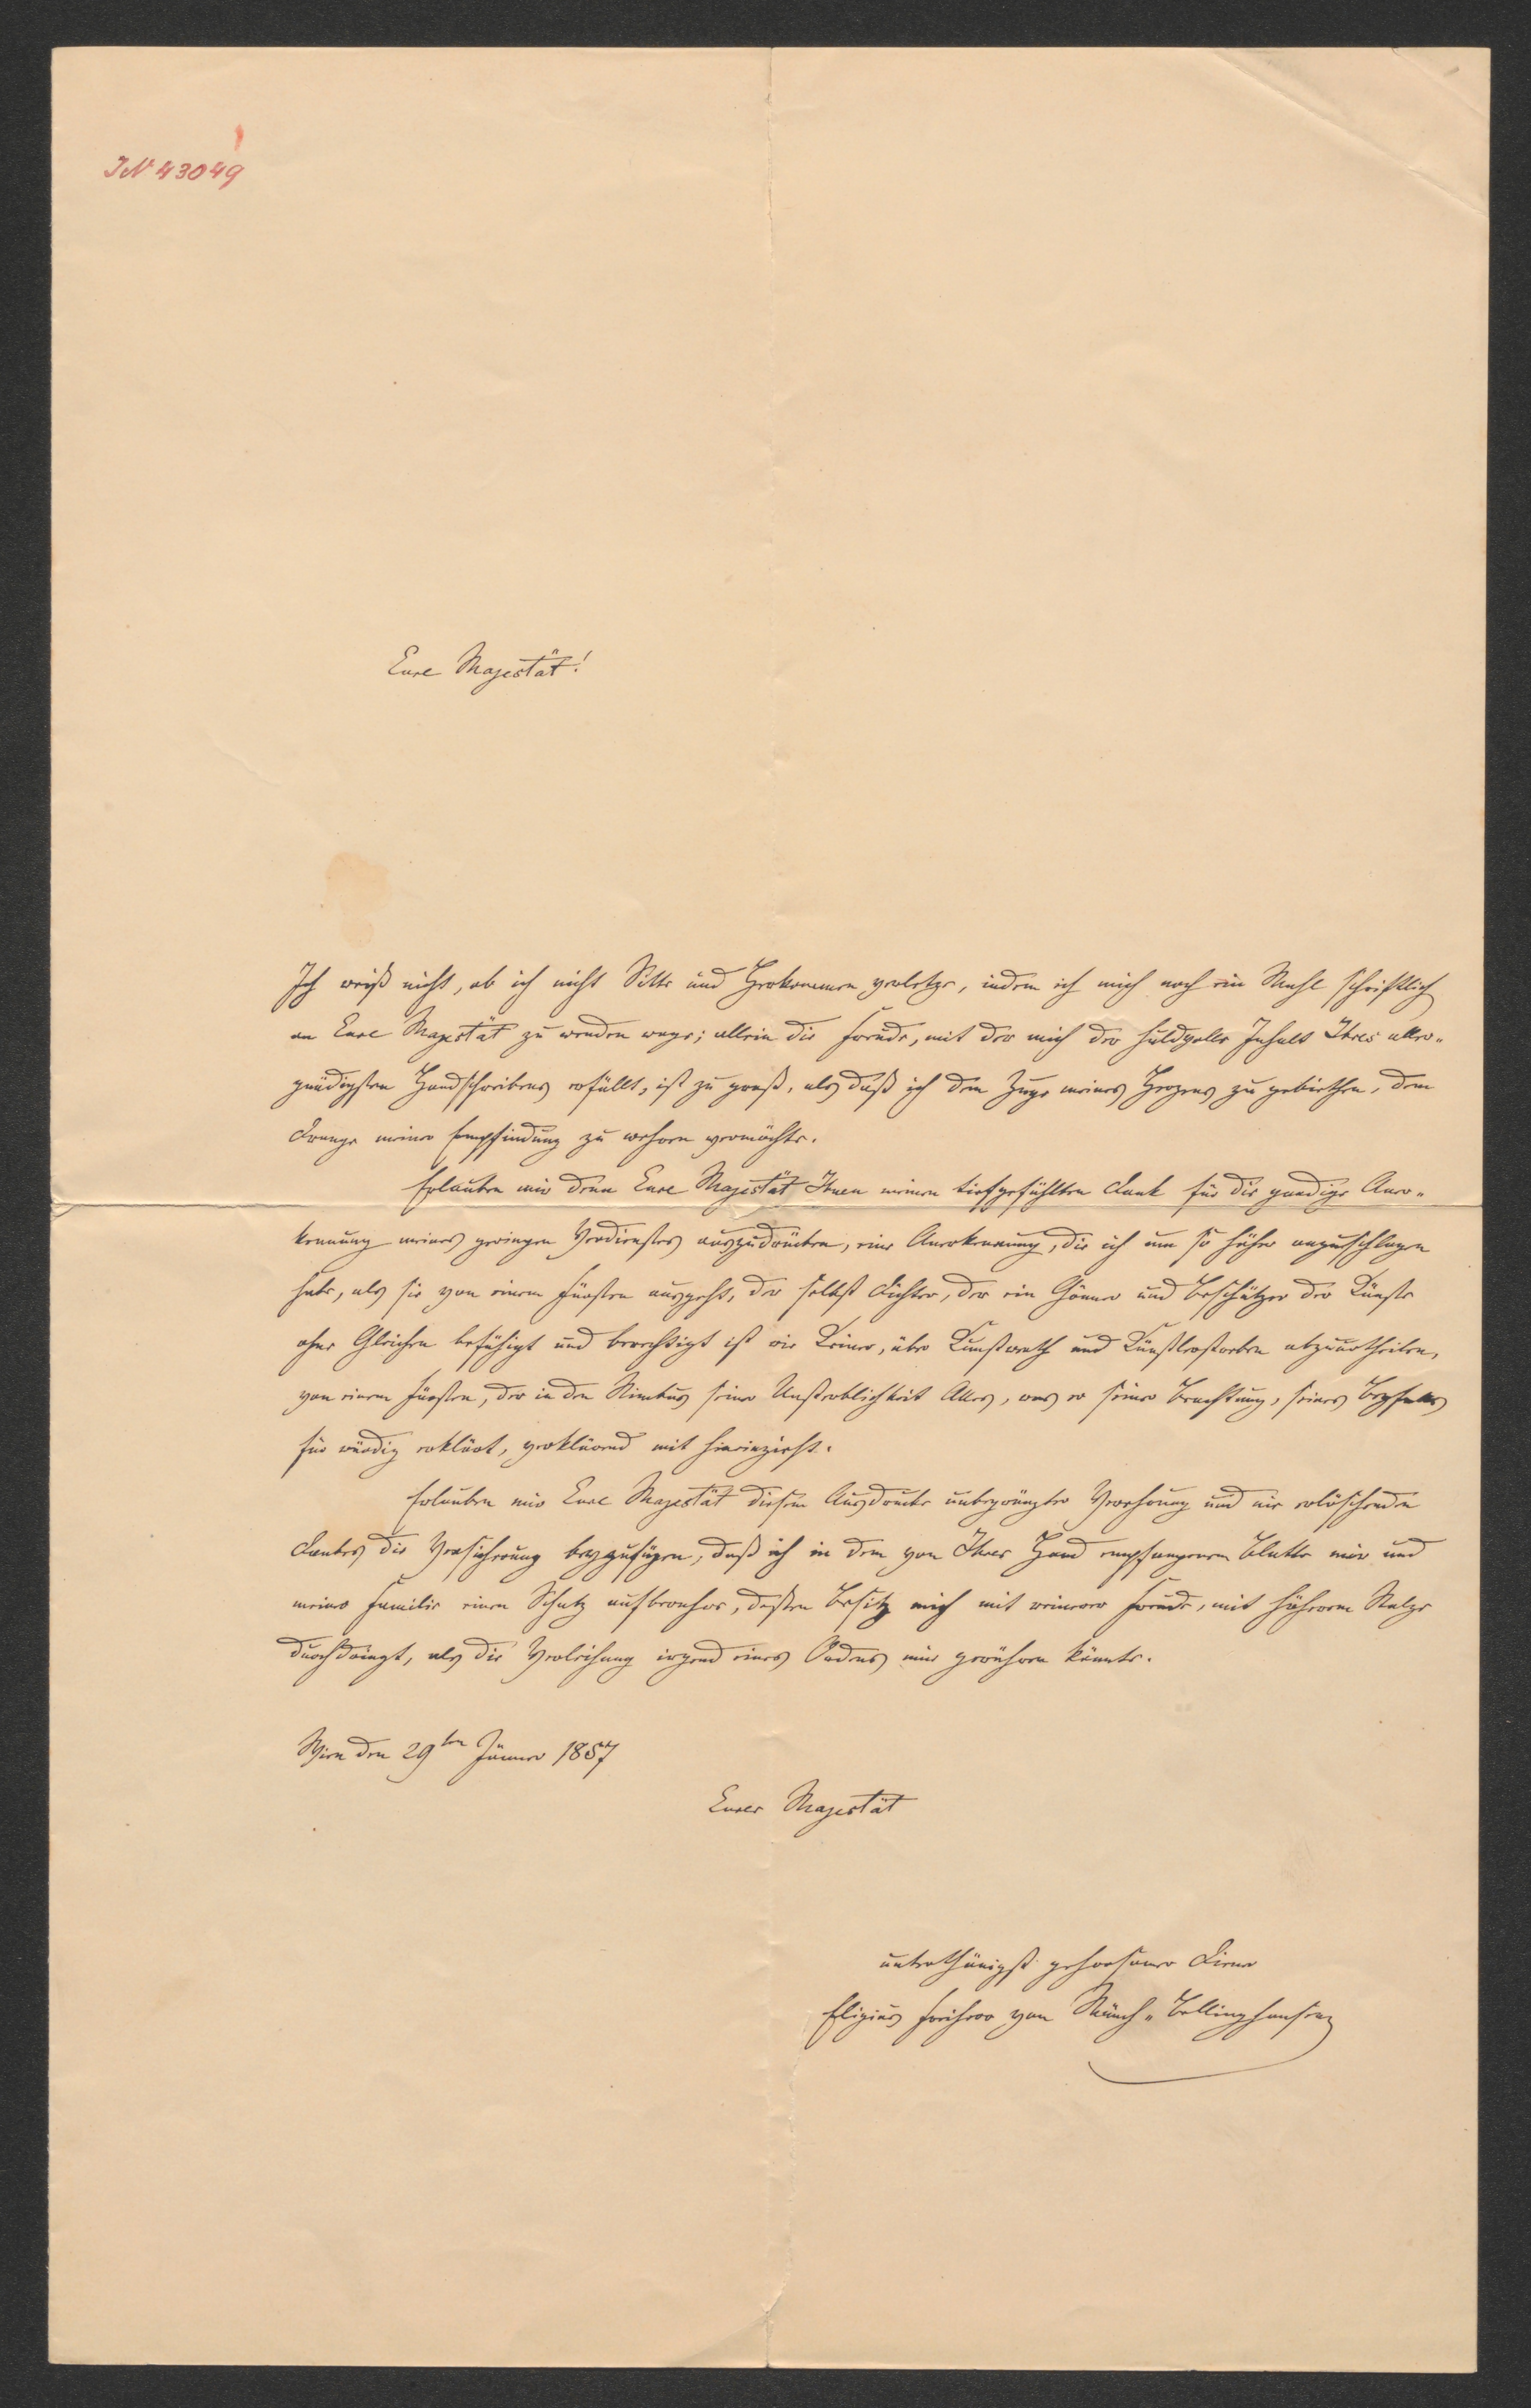 IN 43049
Eure Majestät!
Ich weiß nicht, ob ich nicht Sitte und Herkommen verletze, indem ich mich noch ein Mahl schriftlich
an Eure Majestät zu wenden wage; allein die Freude, mit der mich der huldvolle Inhalt Ihres aller-
gnädigsten Handschreibens erfüllt, ist zu groß, als daß ich dem Zuge meines Herzens zu gebiethen, dem
Drange meiner Empfindung zu wehren vermöchte.
Erlauben mir denn Eure Majestät Ihnen meinen tiefgefühlten Dank für die gnädige Aner-
kennung meines geringen Verdienstes auszudrücken, eine Anerkennung, die ich um so höher anzuschlagen
habe, als sie von einem Fürsten ausgeht, der selbst Dichter, der ein Gönner und Beschützer der Künste
ohne Gleichen befähigt und berechtigt ist wie Keiner, über Kunstwerth und Künstlerstreben abzuurtheilen,
von einem Fürsten, der in den Nimbus seiner Unsterblichkeit Alles, was er seiner Beachtung, seines Beyfalls
für würdig erklärt, verklärend mit hineinzieht.
Erlauben mir Eure Majestät diesem Ausdrucke unbegränzter Verehrung und nie erlöschenden
Dankes die Versicherung beyzufügen, daß ich in dem von Ihrer Hand empfangenen Blatte mir und
meiner Familie einen Schatz aufbewahre, dessen Besitz mich mit reinerer Freude, mit höherem Stolze
durchdringt, als die Verleihung irgend eines Ordens mir gewähren könnte.
Wien den 29ten Jänner 1857
Eurer Majestät
unterthänigst gehorsamer Diener
Eligius Freiherr von Münch-Bellinghausen